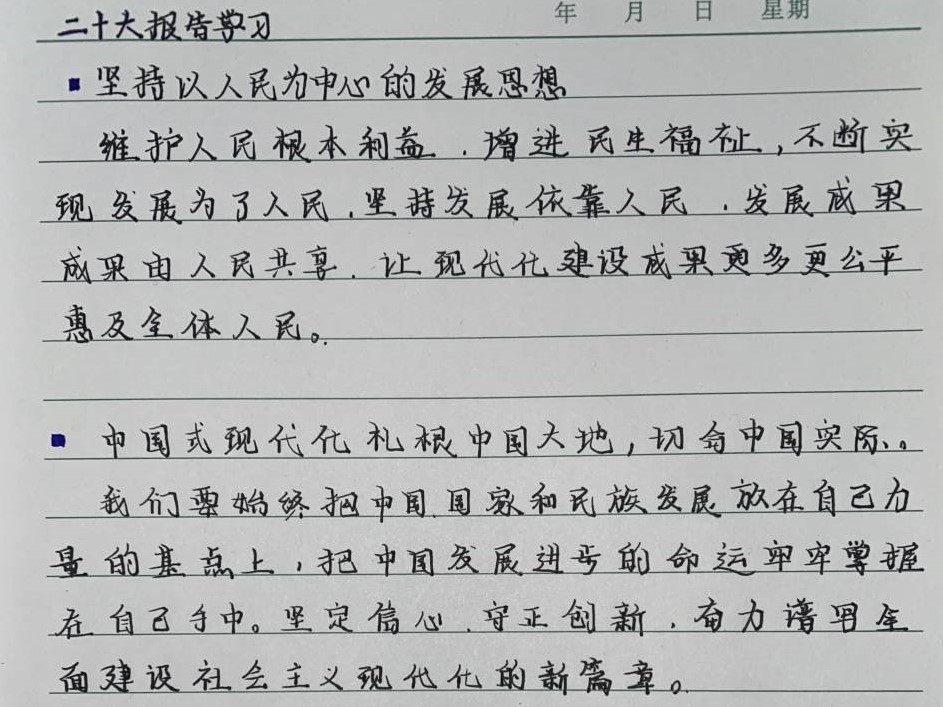 年 月 日 星期
二十大报告学习
▪ 坚持以人民为中心的发展思想
维护人民根本利益、增进民生福祉,不断实
现发展为了人民、坚持发展依靠人民、发展成果
成果由人民共享、让现代化建设成果更多更公平
惠及全体人民。
▪ 中国式现代化札根中国大地,切合中国实际、。
我们要始终把中国国家和民族发展放在自己力
量的基点上,把中国发展进步的命运牢牢掌握
在自己手中。坚定信心、守正创新、奋力谱写全
面建设社会主义现代化的新篇章。